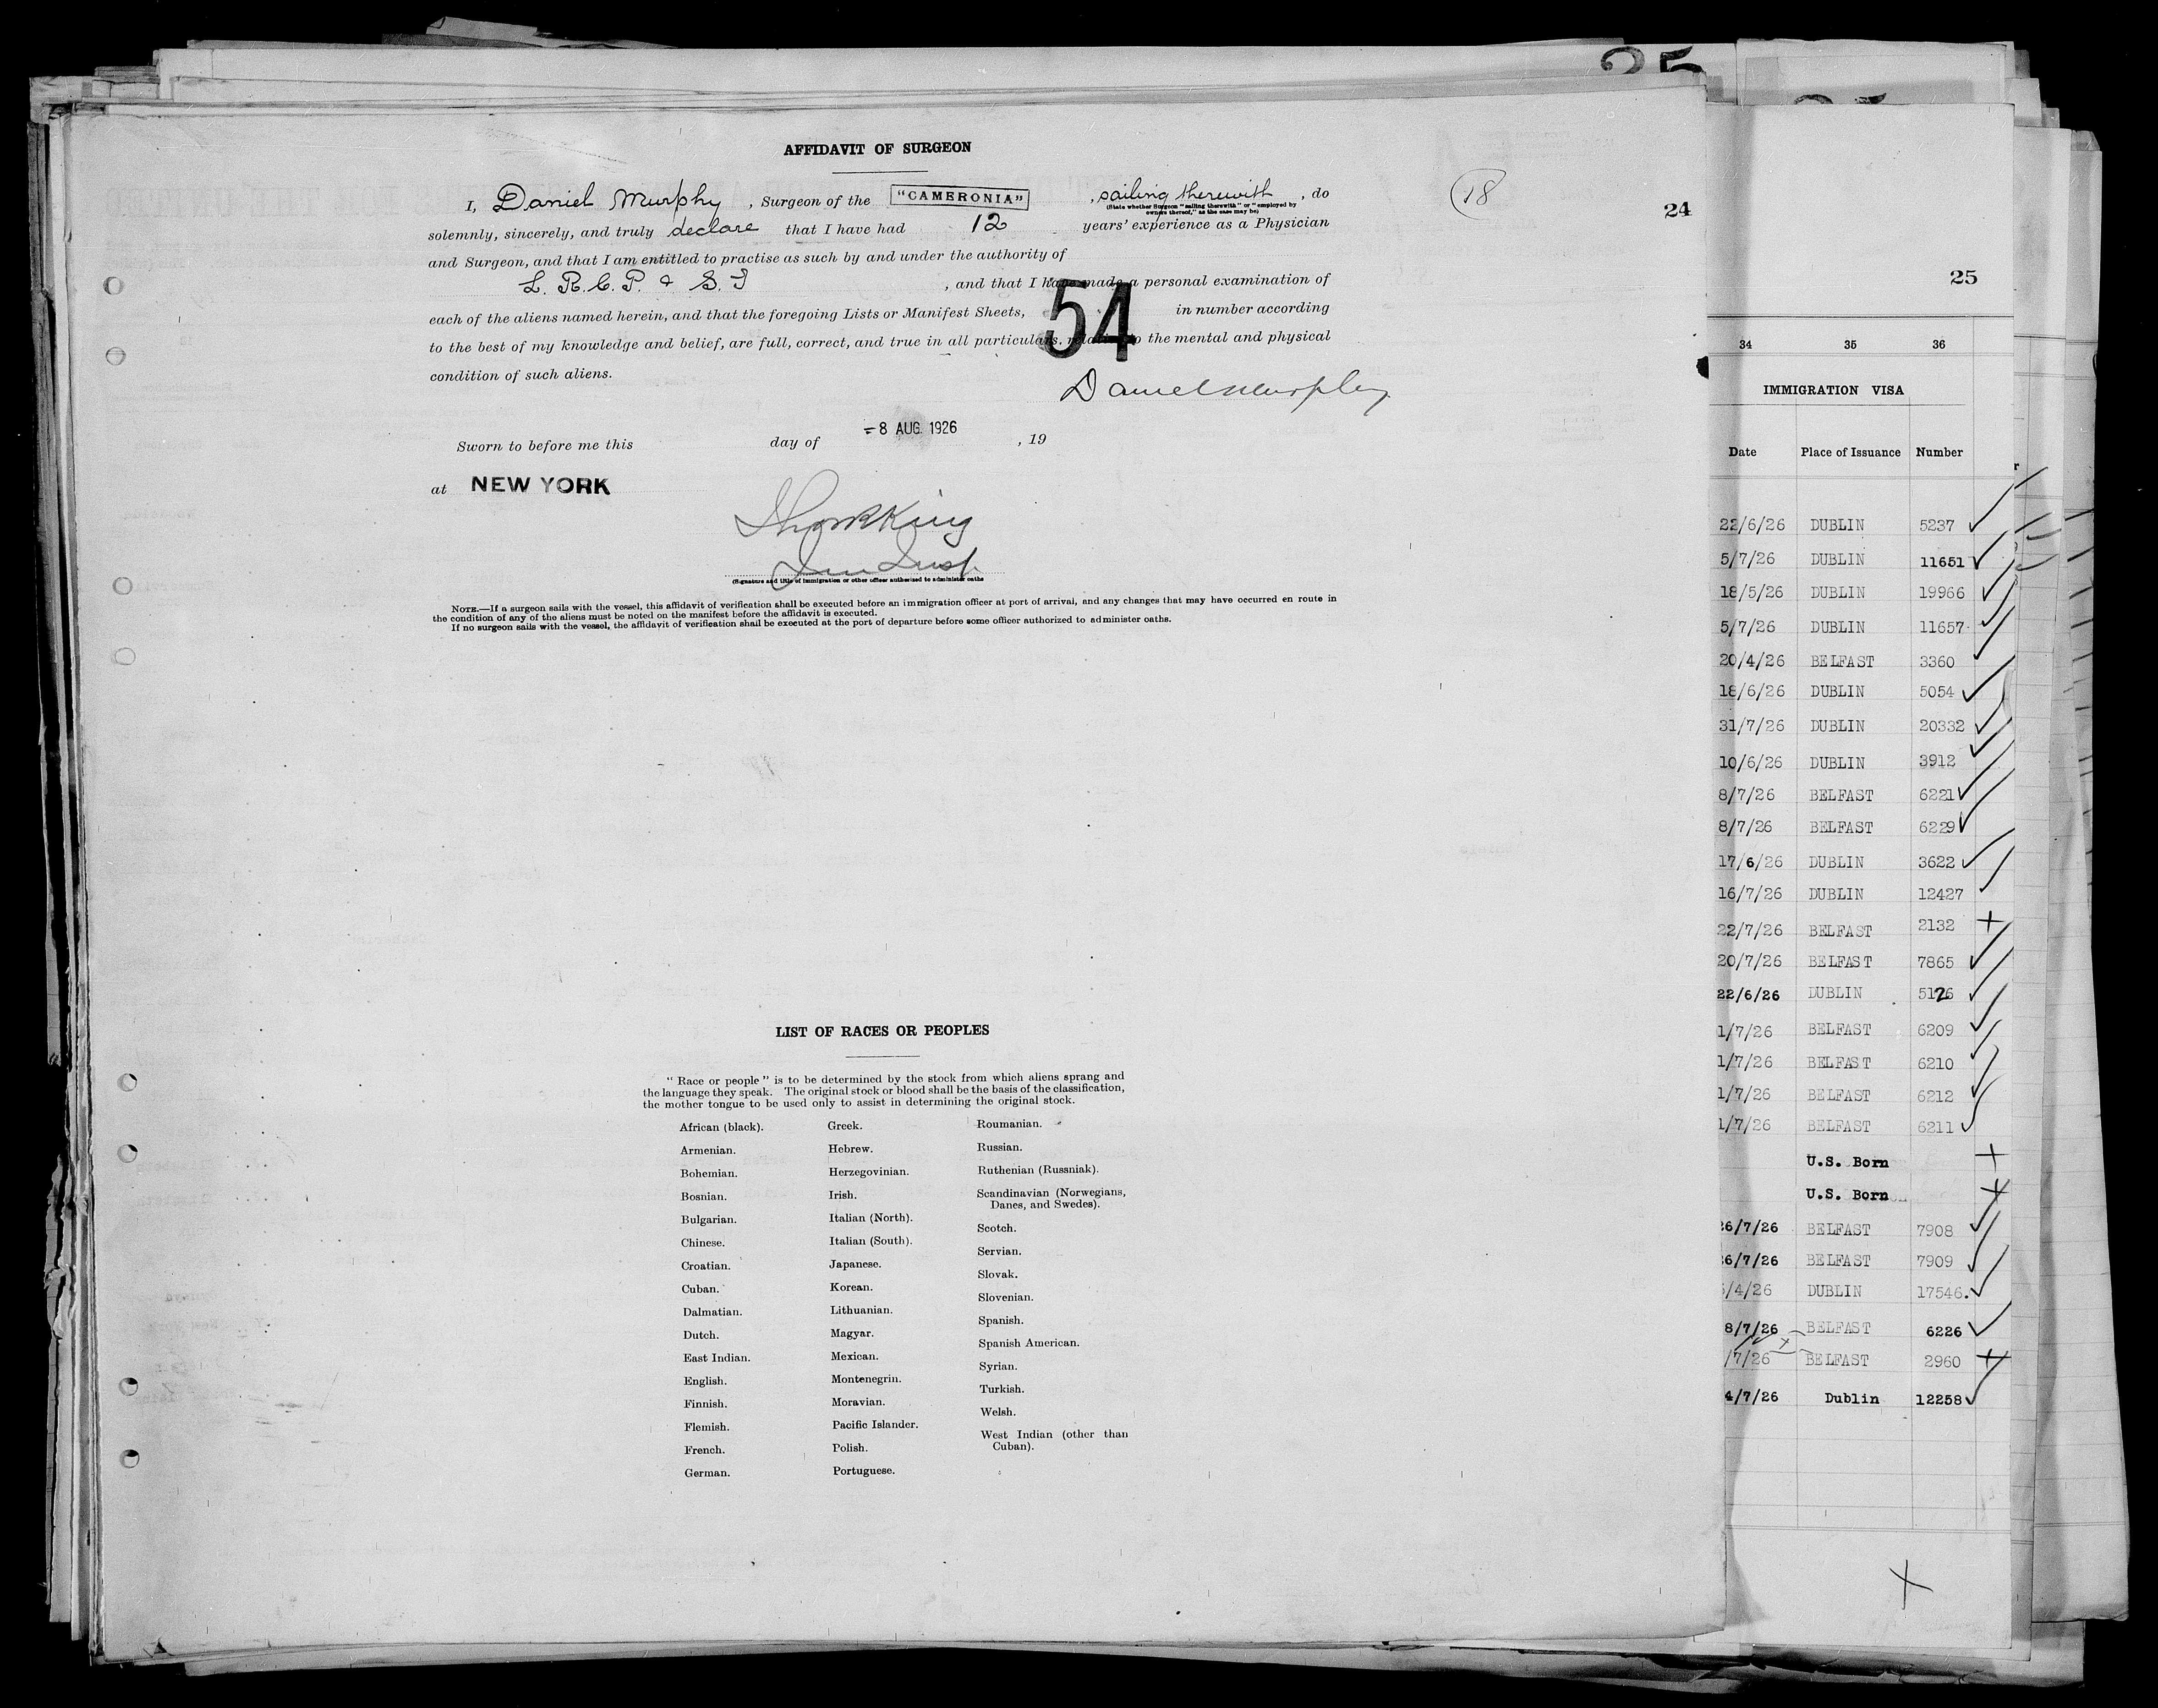 AFFIDAVIT OF SURGEON
I, Daniel Murphy, Surgeon of the "CAMERONIA", sailing therewith, do
(State whether Surgeon "sailing therewith" or "employed by owners thereof," as the case may be)
solemnly, sincerely, and truly declare that I have had 12 years' experience as a Physician
and Surgeon, and that I am entitled to practise as such by and under the authority of
L. R. C. P. & S. I, and that I have made a personal examination of
each of the aliens named herein, and that the foregoing Lists or Manifest Sheets, 54 in number according
to the best of my knowledge and belief, are full, correct, and true in all particulars, relating to the mental and physical
condition of such aliens.
Daniel Murphy
Sworn to before me this day of -8 AUG. 1926, 19
at NEW YORK
King
(Signature and title of immigration or other officer authorised to administer oaths
NOTE.—If a surgeon sails with the vessel, this affidavit of verification shall be executed before an immigration officer at port of arrival, and any changes that may have occurred en route in
the condition of any of the aliens must be noted on the manifest before the affidavit is executed.
If no surgeon sails with the vessel, the affidavit of verification shall be executed at the port of departure before some officer authorized to administer oaths.
LIST OF RACES OR PEOPLES
"Race or people" is to be determined by the stock from which aliens sprang and
the language they speak. The original stock or blood shall be the basis of the classification,
the mother tongue to be used only to assist in determining the original stock.
African (black).
Armenian.
Bohemian.
Bosnian.
Bulgarian.
Chinese.
Croatian.
Cuban.
Dalmatian.
Dutch.
East Indian.
English.
Finnish.
Flemish.
French.
German.
Greek.
Hebrew.
Herzegovinian.
Irish.
Italian (North).
Italian (South).
Japanese.
Korean.
Lithuanian.
Magyar.
Mexican.
Montenegrin.
Moravian.
Pacific Islander.
Polish.
Portuguese.
Roumanian.
Russian.
Ruthenian (Russniak).
Scandinavian (Norwegians,
Danes, and Swedes).
Scotch.
Servian.
Slovak.
Slovenian.
Spanish.
Spanish American.
Syrian.
Turkish.
Welsh.
West Indian (other than
Cuban).
18
24
25
25
34 35 36
IMMIGRATION VISA
Date Place of Issuance Number
22/6/26 DUBLIN 5237
5/7/26 DUBLIN 11651
18/5/26 DUBLIN 19966
5/7/26 DUBLIN 11657
20/4/26 BELFAST 3360
18/6/26 DUBLIN 5054
31/7/26 DUBLIN 20332
10/6/26 DUBLIN 3912
8/7/26 BELFAST 6221
8/7/26 BELFAST 6229
17/6/26 DUBLIN 3622
16/7/26 DUBLIN 12427
22/7/26 BELFAST 2132
20/7/26 BELFAST 7865
22/6/26 DUBLIN 5126
1/7/26 BELFAST 6209
1/7/26 BELFAST 6210
1/7/26 BELFAST 6212
1/7/26 BELFAST 6211
U.S. Born
U.S. Born
26/7/26 BELFAST 7908
26/7/26 BELFAST 7909
/4/26 DUBLIN 17546.
8/7/26 BELFAST 6226
/7/26 BELFAST 2960
4/7/26 Dublin 12258